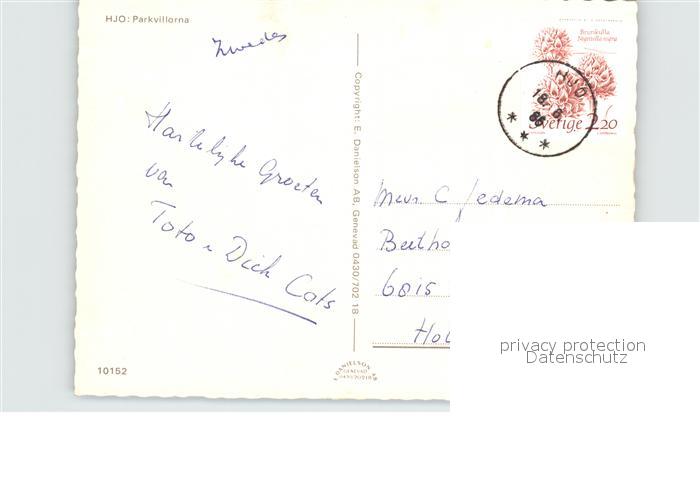 HJO: Parkvillorna
Zweden
Hartelijke Groeten
van
Toto & Dick Cats
10152
Copyright: E. Danielson AB, Genevad 0430/702 18
E. DANIELSON AB
GENEVAD
0430/70218
Brunkulla
Nigritella nigra
Sverige 2.20
HJO
18-6
86
Mevr. C Jedema
Beetho
6815
Hol
privacy protection
Datenschutz